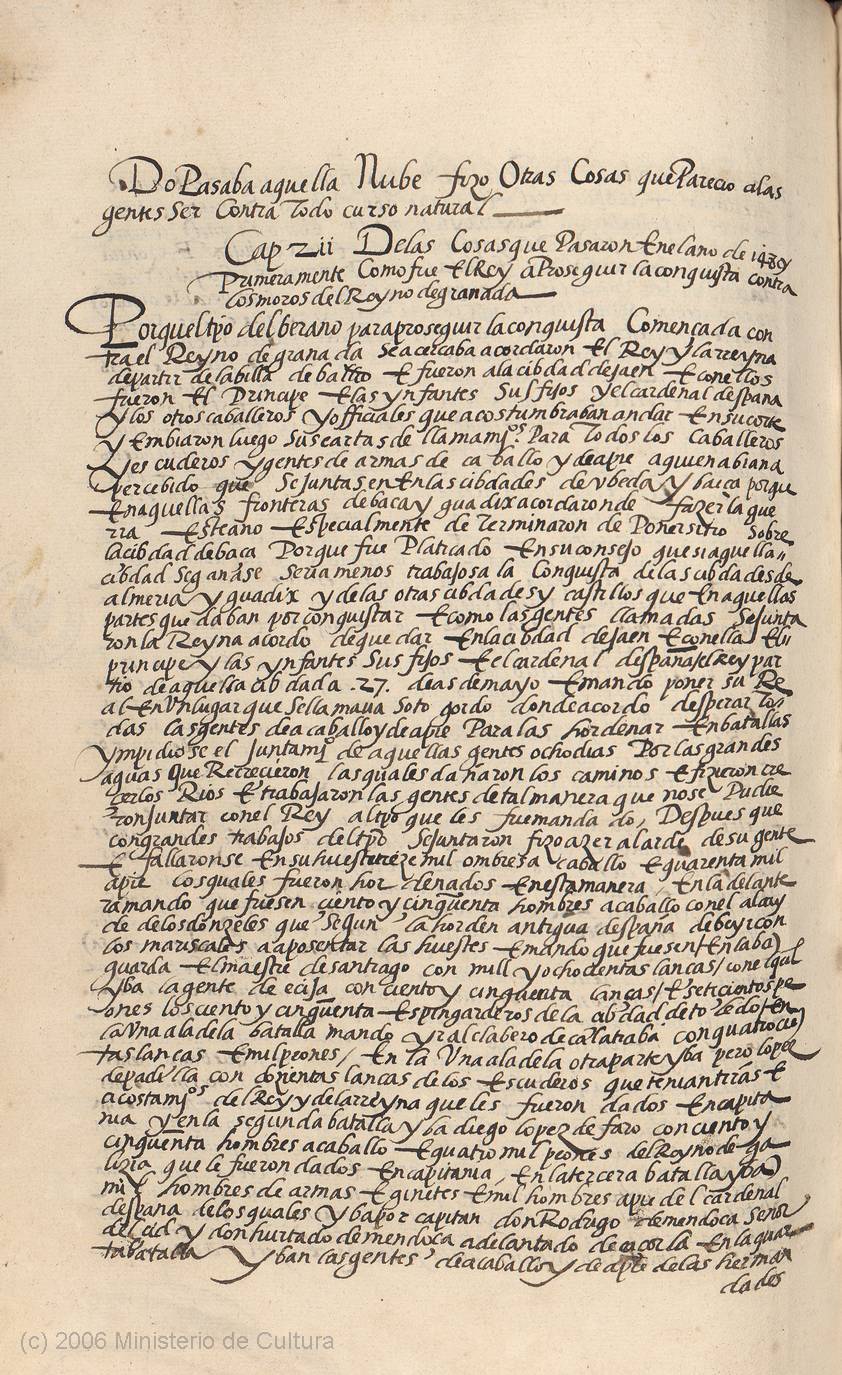 Do Pasaba aquella Nube fizo Otras Cosas que Parecio alas
gentes Ser Contra Todo curso natural
Cap 2ii Delas Cosas que Pasaron Enel ano de 1489
Primeramente Como fue El Rey a Proseguir la conquista contra
los moros del Reyno de granada
Por quel tpo del berano para proseguir la conquista Començada con
tra el Reyno de granada Se acercaba acordaron El Rey y la rreyna
departir de la billa de E fueron ala cibdad de jaen E con ellos
fueron El Principe E las ynfantes Sus fijos y el cardenal despana
y los otros caballeros y officiales que acostumbraban andar En su corte
y Embiaron luego Sus cartas de llamamjos Para Todos los Caballeros
y escuderos y gentes de armas de caballo y de apie a quien abian a
percebido que Se juntasen En las cibdades de ybeda y baeça porque
En aquellas fronteras de baca y guadix acordaron de fazer la gue
rra Este ano Especialmente de Terminaron de Poner sitio Sobre
la cibdad de baca Porque fue Platicado En su consejo que si aquella
cibdad Se ganase Seria menos trabajosa la Conquista de las cibdades de
almeria y guadix y de las otras cibdades y castillos que En aquellas
partes quedaban por conquistar E como las gentes llamadas Se junta
ron la Reyna acordo de quedar En la cibdad de jaen E con ella El
principe y las ynfantes Sus fijos E el cardenal despaña / el Rey par
tio de aquella cibdad a .27. deas de mayo E mando poner su Re
al En Vn lugar que Se llamaua Soto gordo donde acordo desperar To
das las gentes de a caballo y de apie Para las hordenar En batallas
y mpidiose el Juntamjo de aquellas gentes ocho dias Por las grandes
aguas Que Recrecieron las quales dañaron los caminos E fizieron cre
cer los Rios E trabajaron las gentes de tal manera que no se Pudie
ron juntar con el Rey al tpo que les fue mandado, Despues que
con grandes trabajos del tpo Se juntaron fizo azer alarde de su gente
E fallaronse En su hueste treze mil ombres a caballo E quarenta mil
apie los quales fueron hordenados En esta manera, En la delante
ra mando que friesen ciento y cinquenta hombres a caballo con el alcay
de de los donzeles que Segun la horden antigua despaña debe yr con
los mariscales a aposentar las huestes E mando que fuesen / En la ba
guarda El maestre de santiago con mill y ochocientas lancas / con el qual
yba la gente de ecija con ciento y cinquenta lancas / E seticientos pe
ones los ciento y cinquenta Espingarderos de la cibdad de toledo / En
la Vna ala de la batalla mando yr al clabero de calatraba con quatrocie
tas lancas E mil peones / En la Vna ala de la otra parte yba pero lopez
de padilla con dozientas lancas de los Escuderos que tenian tiras E
acostamjos del Rey y de la rreyna que les fueron dados En capita
nia y en la segunda batalla yba diego lopez de faro con ciento y
cinquenta hombres a caballo E quatro mil peones del Reyno de ga
lizia que le fueron dados En capitania, En la tercera batalla yba
mil hombres de armas E ginetes E mil hombres apie del cardenal
despana de los quales yba por capitan don Rodrigo de mendoca Señor
del cid y don hurtado de mendoca adelantado de cacorla En la quar
ta batalla yban las gentes de a caballo y de apie de las herman
dades
(c) 2006 Ministerio de Cultura